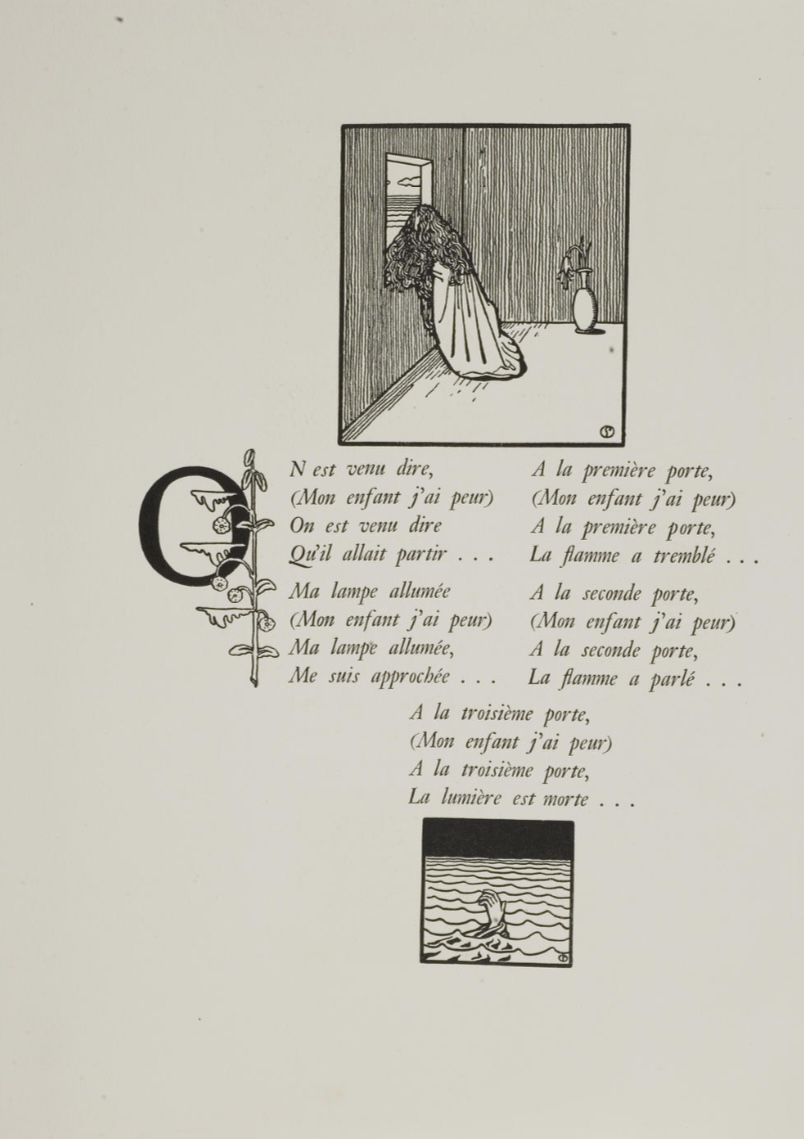 ON est venu dire,
(Mon enfant j'ai peur)
On est venu dire
Qu'il allait partir . . .
Ma lampe allumée
(Mon enfant j'ai peur)
Ma lampe allumée,
Me suis approchée . . .
A la première porte,
(Mon enfant j'ai peur)
A la première porte,
La flamme a tremblé . . .
A la seconde porte,
(Mon enfant j'ai peur)
A la seconde porte,
La flamme a parlé . . .
A la troisième porte,
(Mon enfant j'ai peur)
A la troisième porte,
La lumière est morte . . .